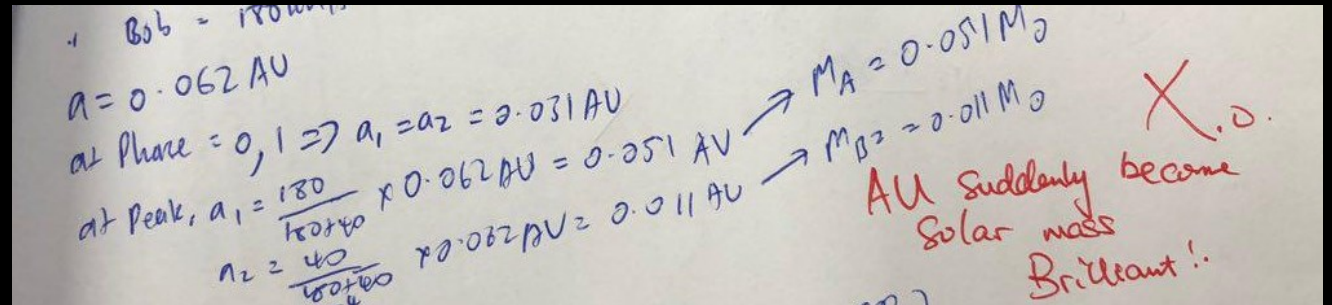 Bob = 180
a = 0.062 AU
at Phase = 0, 1 => a₁ = a₂ = 0.031 AU
at Peak, a₁ = 180/180+40 x 0.062 AU = 0.051 AU → M_A = 0.051 M⊙
a₂ = 40/180+40 x 0.062 AU = 0.011 AU → M_B = 0.011 M⊙
X.0.
AU suddenly become
Solar mass
Brilliant!.